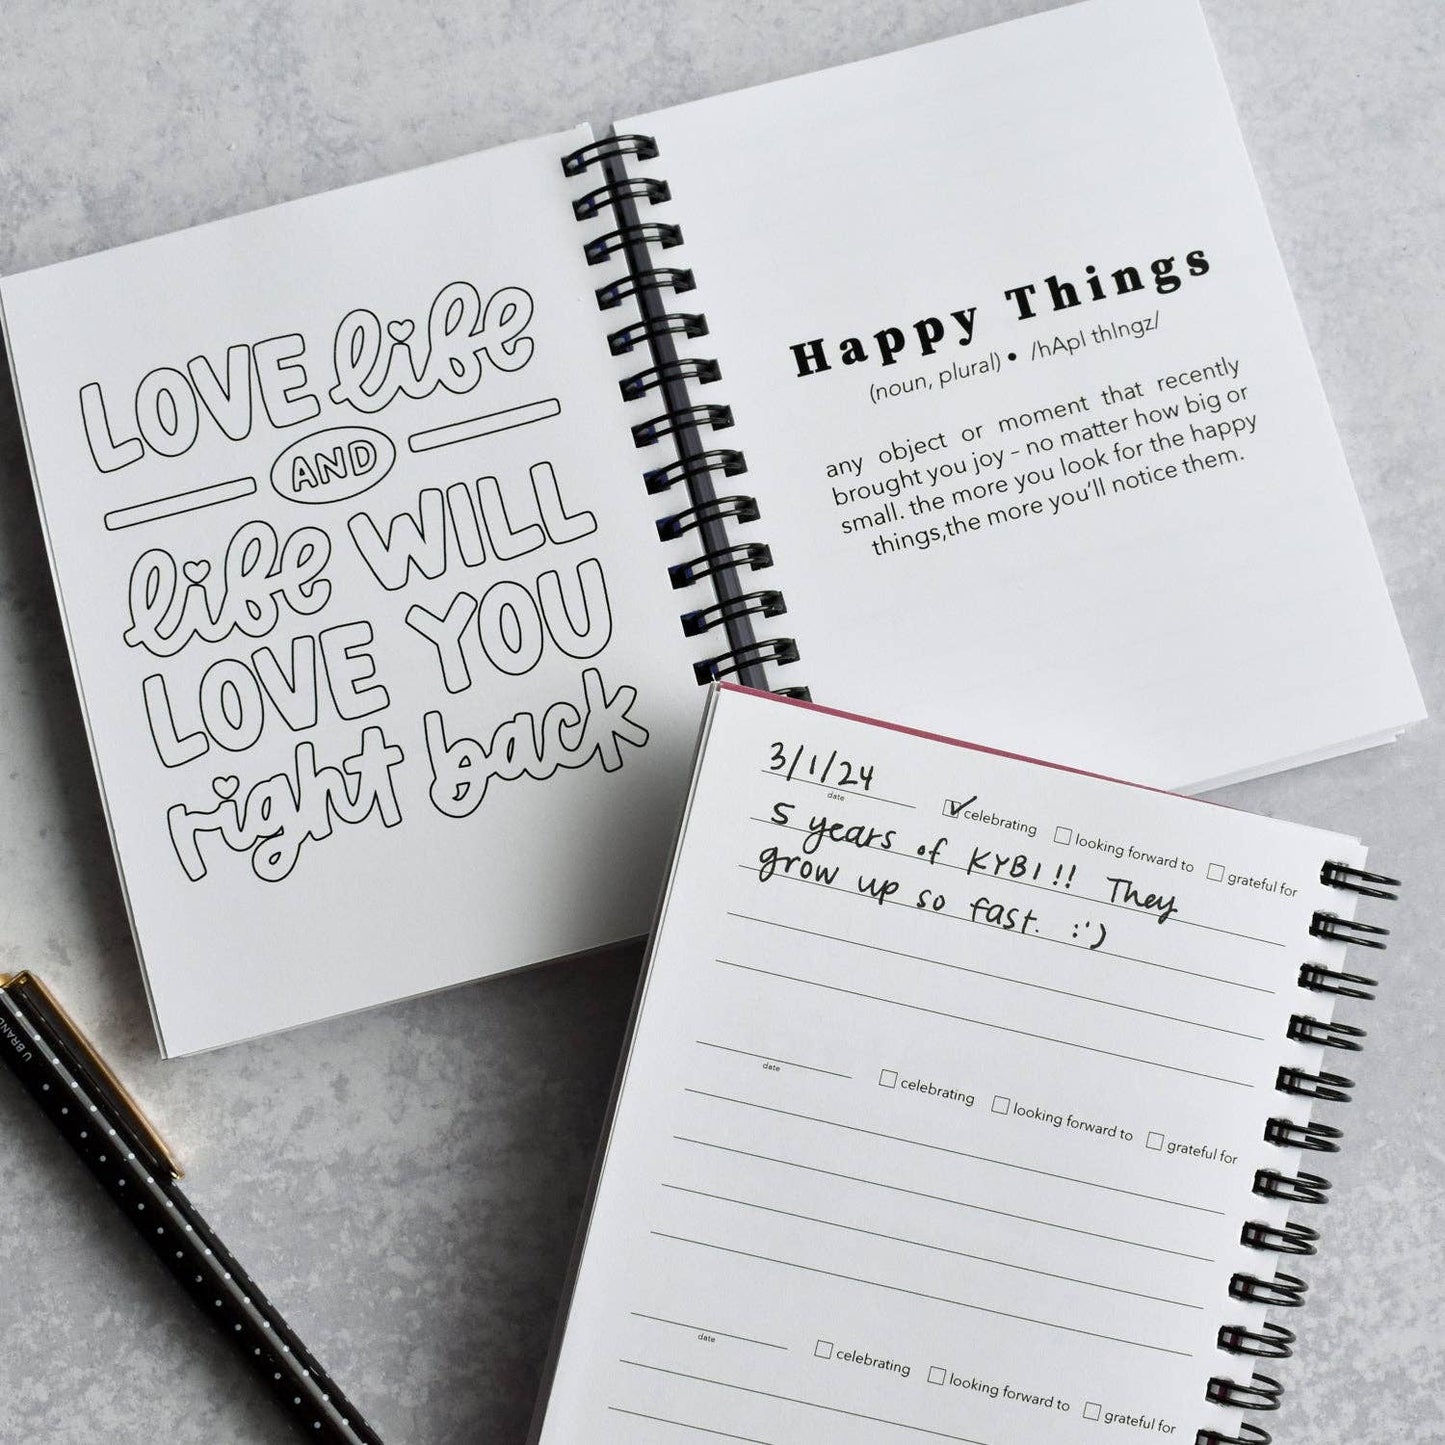 LOVE life
AND
life WILL
LOVE YOU
right back
Happy Things
(noun, plural) • /hApI thIngz/
any object or moment that recently
brought you joy – no matter how big or
small. the more you look for the happy
things,the more you'll notice them.
3/1/24
date
celebrating looking forward to grateful for
5 years of KYBI!! They
grow up so fast. :')
date
celebrating looking forward to grateful for
date
celebrating looking forward to grateful for
U BRAND